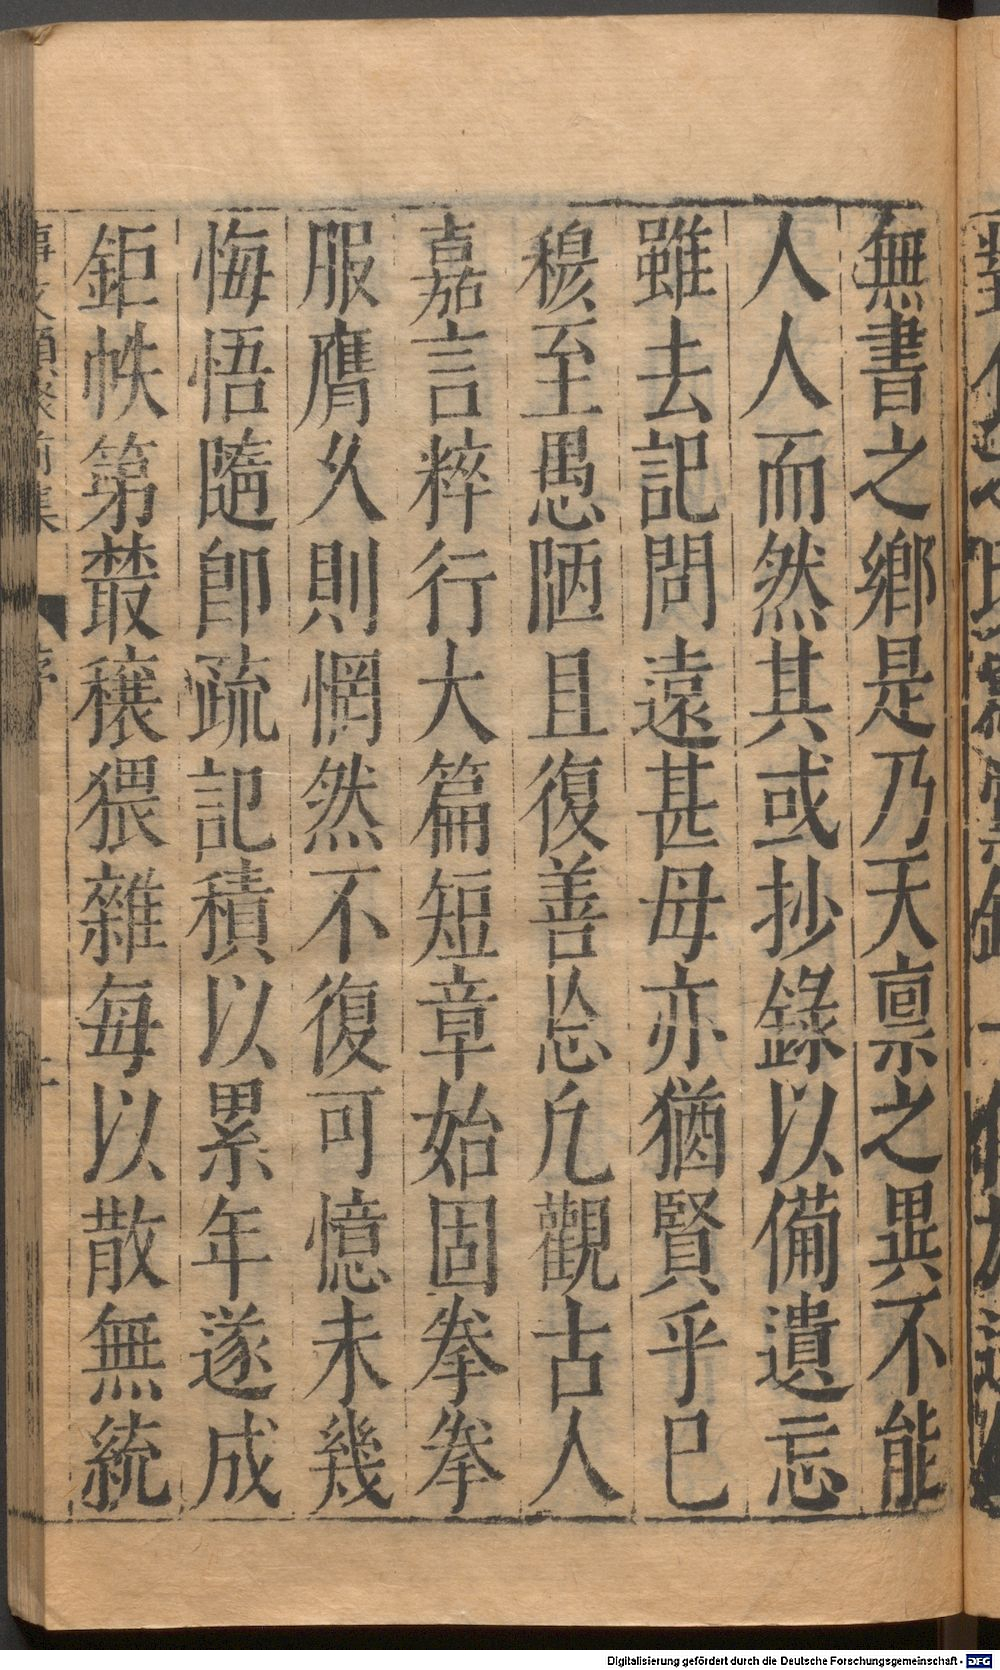 無書之鄉是乃天禀之異不能
人人而然其或抄錄以備遺忘
雖去記問遠甚毋亦猶賢乎巳
穆至愚陋且復善忘凢觀古人
嘉言粹行大篇短章始固拳拳
服膺乆則惘然不復可憶未幾
悔悟隨卽疏記積以累年遂成
鉅帙第叢穰猥雜每以散無統
事文類聚前集 序
Digitalisierung gefördert durch die Deutsche Forschungsgemeinschaft - DFG